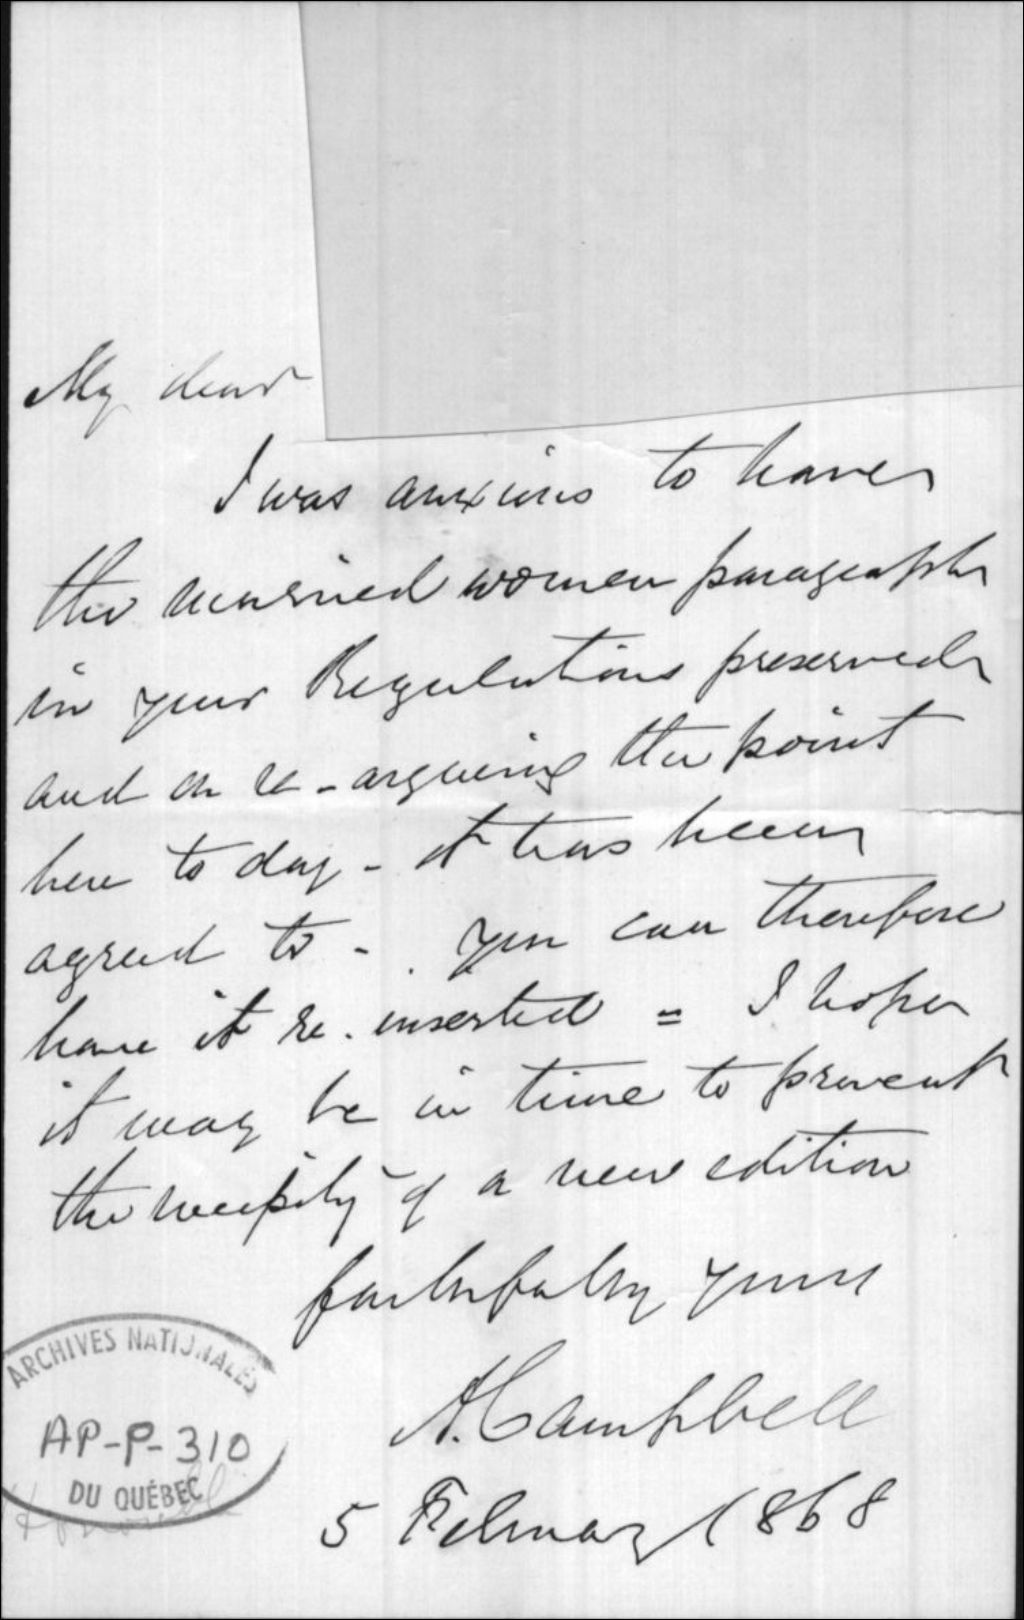 My dear
I was anxious to have
the married women paragraph
in your Regulations preserved
and on re-arguing the point
here to day - it has been
agreed to - you can therefore
have it re-inserted = I hope
it may be in time to prevent
the necessity of a new edition
faithfully yours
A. Campbell
5 February 1868
ARCHIVES NATIONALES
AP-P-310
DU QUÉBEC